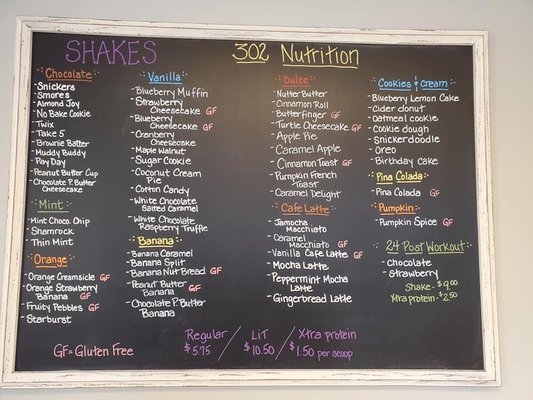 SHAKES
302 Nutrition
Chocolate
- Snickers
- Smores
- Almond Joy
- No Bake Cookie
- Twix
- Take 5
- Brownie Batter
- Muddy Buddy
- Pay Day
- Peanut Butter Cup
- Chocolate P. Butter
Cheesecake
Mint
- Mint Choco. Chip
- Shamrock
- Thin Mint
Orange
- Orange Creamsicle GF
- Orange Strawberry
Banana GF
- Fruity Pebbles GF
- Starburst
Vanilla
- Blueberry Muffin
- Strawberry
Cheesecake GF
- Blueberry
Cheesecake GF
- Cranberry
Cheesecake GF
- Maple Walnut
- Sugar Cookie
- Coconut Cream
Pie
- Cotton Candy
- White Chocolate
Salted Caramel
- White Chocolate
Raspberry Truffle
Banana
- Banana Caramel
- Banana Split
- Banana Nut Bread GF
- Peanut Butter
Banana GF
- Chocolate P. Butter
Banana
Dulce
- Nutter Butter
- Cinnamon Roll
- Butterfinger GF
- Turtle Cheesecake GF
- Apple Pie
- Caramel Apple
- Cinnamon Toast GF
- Pumpkin French
Toast
- Caramel Delight
Cafe Latte
- Jamocha
Macchiato
- Caramel
Macchiato GF
- Vanilla Cafe Latte GF
- Mocha Latte
- Peppermint Mocha
Latte
- Gingerbread Latte
Cookies & Cream
- Blueberry Lemon Cake
- Cider Donut
- Oatmeal Cookie
- Cookie dough
- Snickerdoodle
- Oreo
- Birthday Cake
Pina Colada
- Pina Colada GF
Pumpkin
- Pumpkin Spice GF
24 Post Workout
- Chocolate
- Strawberry
Shake - $9.00
Xtra protein - $2.50
GF = Gluten Free
Regular / LiT / Xtra protein
$5.75 / $10.50 / $1.50 per scoop